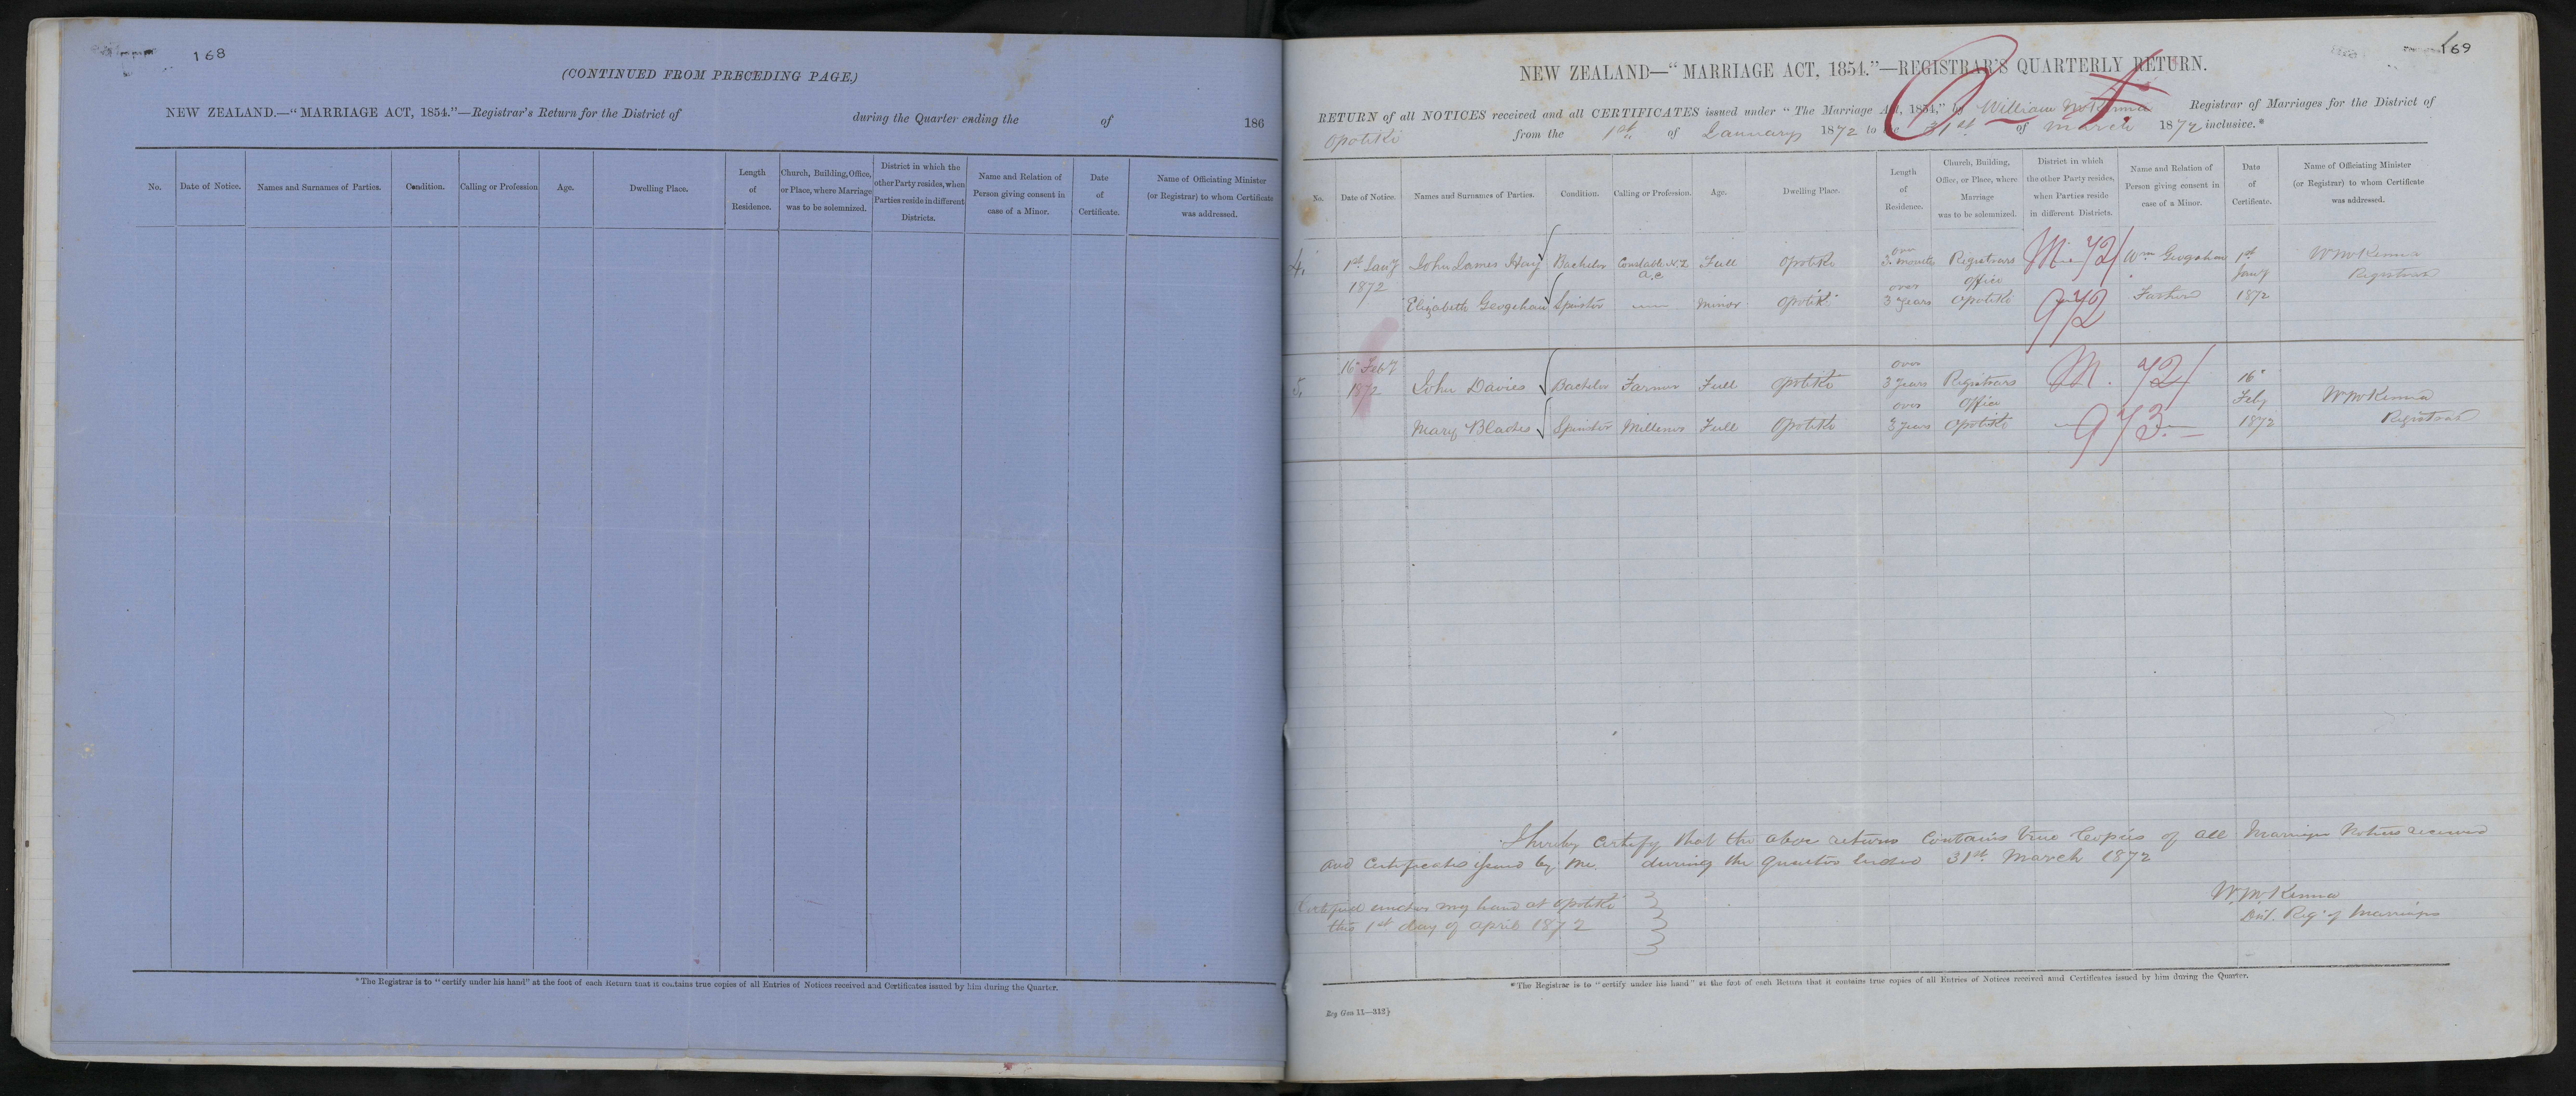 168
(CONTINUED FROM PRECEDING PAGE.)
NEW ZEALAND.—"MARRIAGE ACT, 1854."—Registrar's Return for the District of during the Quarter ending the of 186
No. Date of Notice. Names and Surnames of Parties. Condition. Calling or Profession Age. Dwelling Place. Length of Residence. Church, Building, Office, or Place, where Marriage was to be solemnized. District in which the other Party resides, when Parties reside in different Districts. Name and Relation of Person giving consent in case of a Minor. Date of Certificate. Name of Officiating Minister (or Registrar) to whom Certificate was addressed.
*The Registrar is to "certify under his hand" at the foot of each Return that it contains true copies of all Entries of Notices received and Certificates issued by him during the Quarter.
169
NEW ZEALAND—"MARRIAGE ACT, 1854."—REGISTRAR'S QUARTERLY RETURN.
RETURN of all NOTICES received and all CERTIFICATES issued under "The Marriage Act, 1854," by William McKenna Registrar of Marriages for the District of
Opotiki from the 1st of January 1872 to the 31st of March 1872 inclusive.*
No. Date of Notice. Names and Surnames of Parties. Condition. Calling or Profession. Age. Dwelling Place. Length of Residence. Church, Building, Office, or Place, where Marriage was to be solemnized. District in which the other Party resides, when Parties reside in different Districts. Name and Relation of Person giving consent in case of a Minor. Date of Certificate. Name of Officiating Minister (or Registrar) to whom Certificate was addressed.
4. 1st Jany 1872 John James Hay Bachelor Constable N.Z. A.C. Full Opotiki over 3 months Registrars Office Opotiki M. 72/ 972 Wm Geogehan Father 1st Jany 1872 W McKenna Registrar
Elizabeth Geogehan Spinster — Minor Opotiki over 3 years
5. 16 Feby 1872 John Davies Bachelor Farmer Full Opotiki over 3 years Registrars Office Opotiki M. 72/ 973 16 Feby 1872 W McKenna Registrar
Mary Spinster Milliner Full Opotiki over 3 years
I hereby certify that the above returns contains true Copies of all Marriage Notices received
and Certificates issued by me during the quarter ended 31st March 1872
Certified under my hand at Opotiki
this 1st day of April 1872
W. McKenna
Dist. Regr of Marriages
*The Registrar is to "certify under his hand" at the foot of each Return that it contains true copies of all Entries of Notices received and Certificates issued by him during the Quarter.
Reg Gen 11.—312}